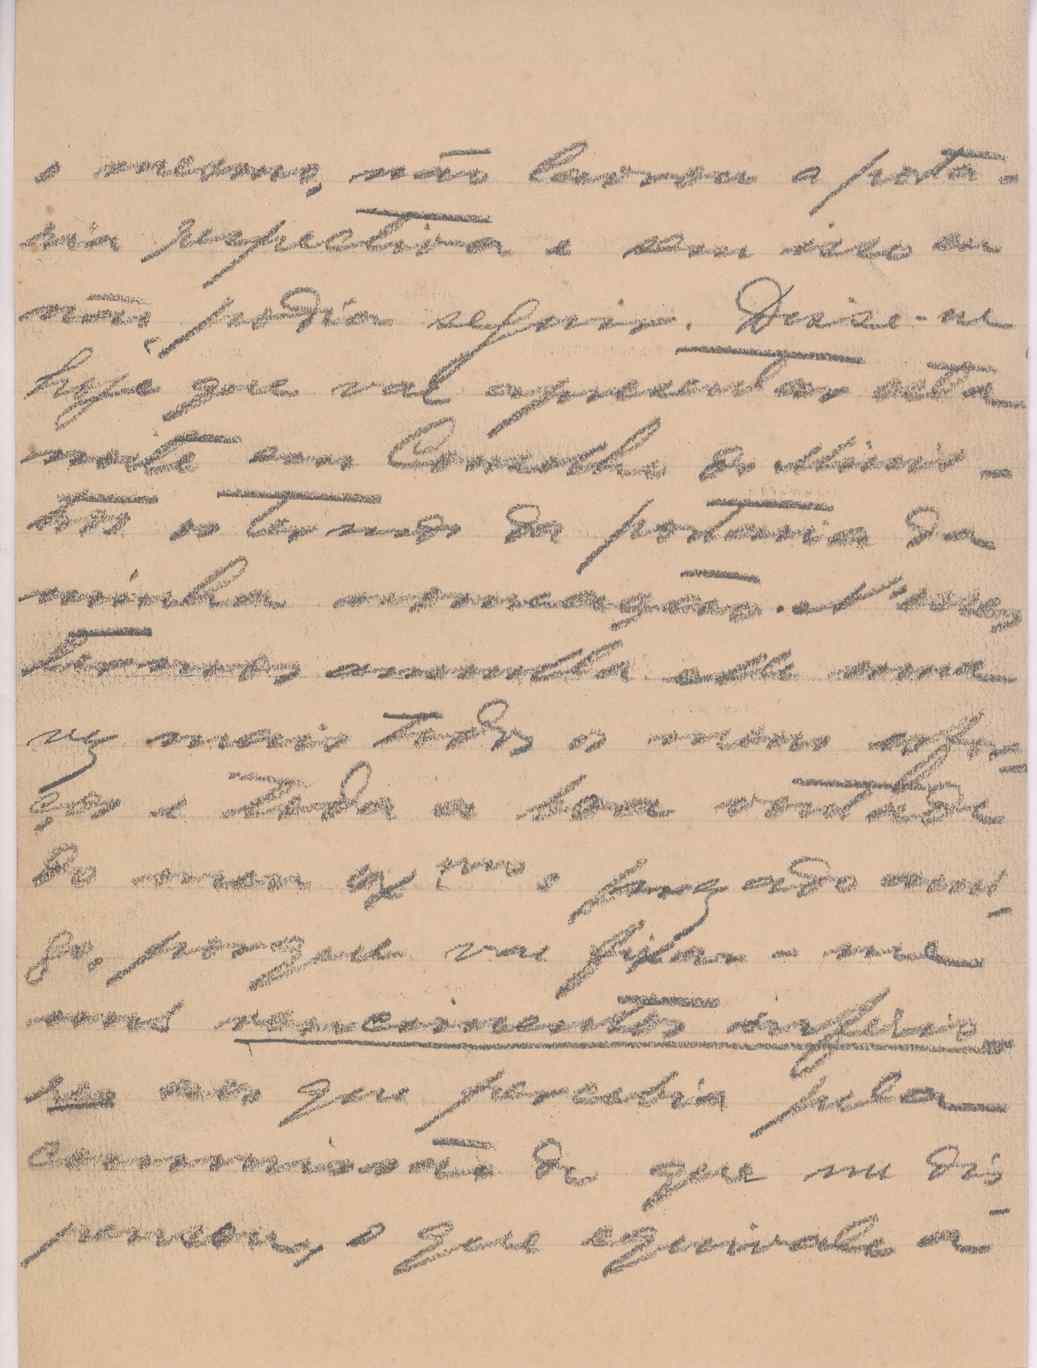 o mesmo, não lavrou a porta-
ria respectiva e sem isso eu
não podia seguir. Disse-me
hoje que vae apresentar esta
noite em Conselho de Minis-
tros os termos da portaria da
minha nomeação. N'esses
termos annulla elle uma
vez mais todos os meus esfor-
ços e toda a boa vontade
do meu Exmo prezado ami-
go, porque vae fixar-me
uns vencimentos inferio-
res aos que percebia pela
commissão de que me dis-
pensou, o que equivale a